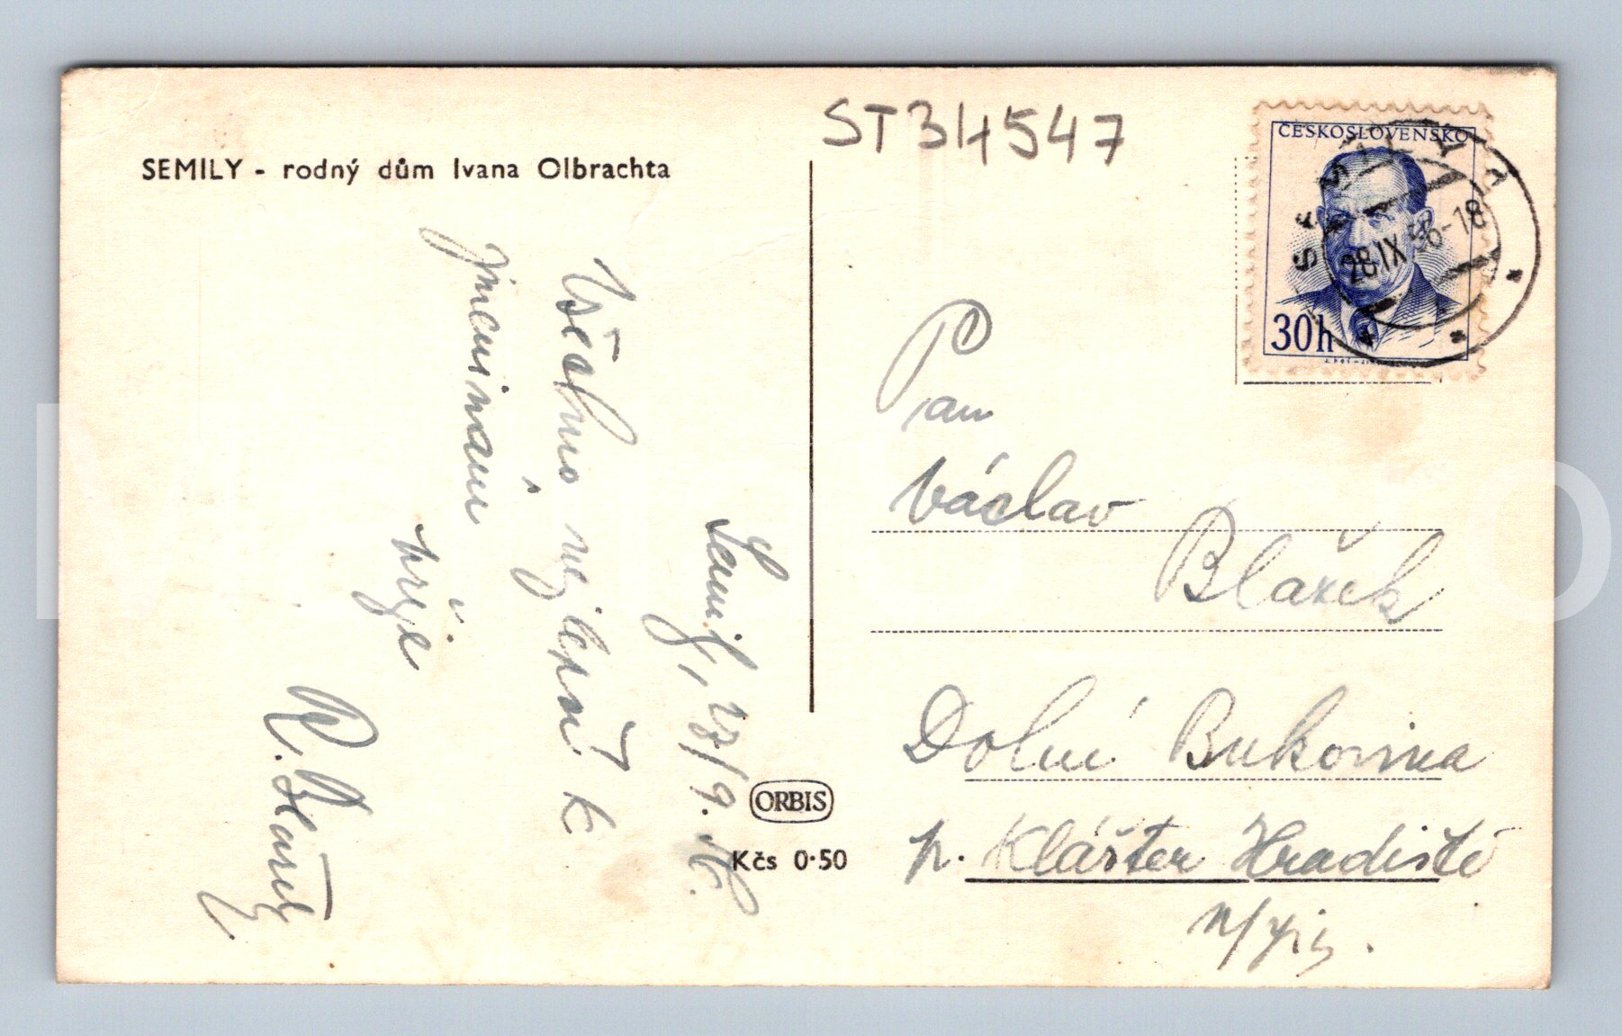 SEMILY - rodný dům Ivana Olbrachta
ST34547
ČESKOSLOVENSKO
30h
SEMILY 1
28.IX.56-18
Semily, 28/9. 56.
Všechno nejlepší k
jmeninám
přeje
Pan
Václav
Blažek
Dolní Bukovina
p. Klášter Hradiště
n/Jiz.
ORBIS
Kčs 0·50